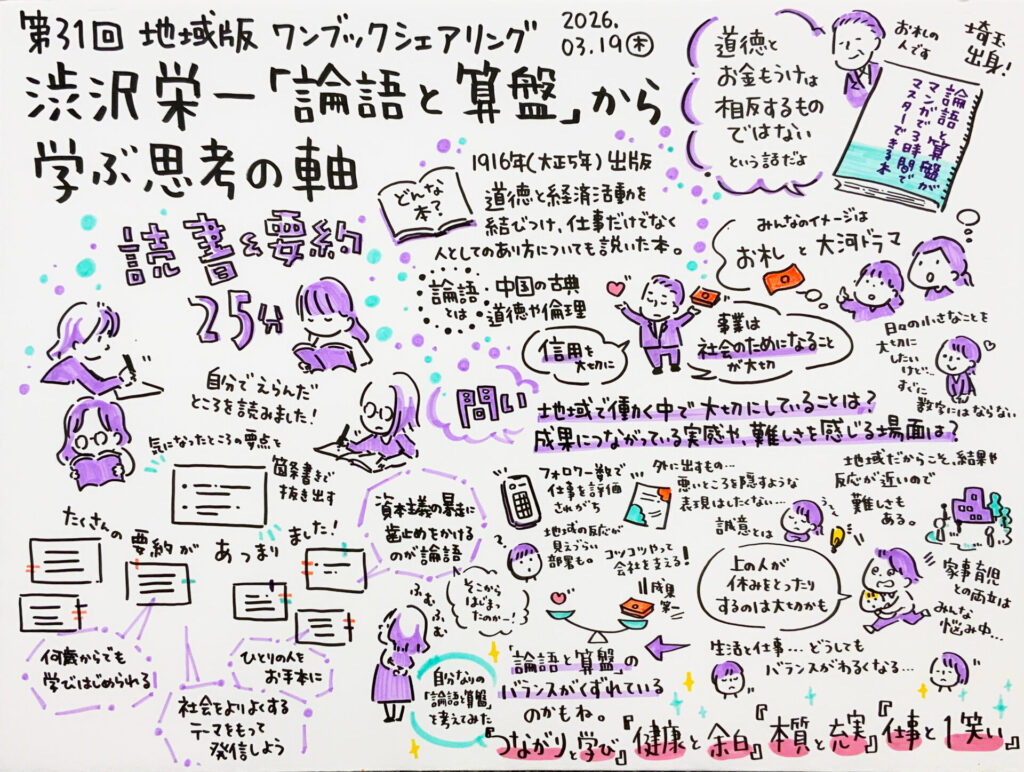 第31回 地域版 ワンブックシェアリング
2026.
03.19㊍
渋沢栄一「論語と算盤」から
学ぶ思考の軸
道徳と
お金もうけは
相反するもの
ではない
という話だよ
お札の
人です
埼玉
出身!
論語と算盤が
マンガで3時間で
マスターできる本
どんな
本?
1916年(大正5年)出版
道徳と経済活動を
結びつけ、仕事だけでなく
人としてのあり方についても説いた本。
論語
とは
・中国の古典
道徳や倫理
みんなのイメージは
お札 と 大河ドラマ
信用を
大切に
事業は
社会のためになること
が大切
日々の小さなことを
大切に
したい
けど…
すぐに
数字にはならない
読書&要約
25分
自分でえらんだ
ところを読みました!
気になったところの要点を
箇条書きで
抜き出す
たくさんの要約が
あつまりました!
何歳からでも
学びはじめられる!
社会をよりよくする
テーマをもって
発信しよう
ひとりの人を
お手本に
資本主義の暴走に
歯止めをかける
のが論語
そこから
はじまっ
たのかー!
ふむ
ふむ
ふむ
自分なりの
「論語と算盤」
を考えてみた
問い
地域で働く中で大切にしていることは?
成果につながっている実感や、難しさを感じる場面は?
フォロワー数で
仕事を評価
されがち
地域の反応が
見えづらい
部署も。
コツコツやって
会社を支える!
外に出すもの…
悪いところを隠すような
表現はしたくない…
誠意とは
地域だからこそ、結果や
反応が近いので
難しさも
ある。
成果
第一
「論語と算盤」の
バランスがくずれている
のかもね。
上の人が
休みをとったり
するのは大切かも
家事育児
との両立は
みんな
悩み中…
生活と仕事…どうしても
バランスがわるくなる…
『つながりと学び』『健康と余白』『本質と充実』『仕事と1笑い』